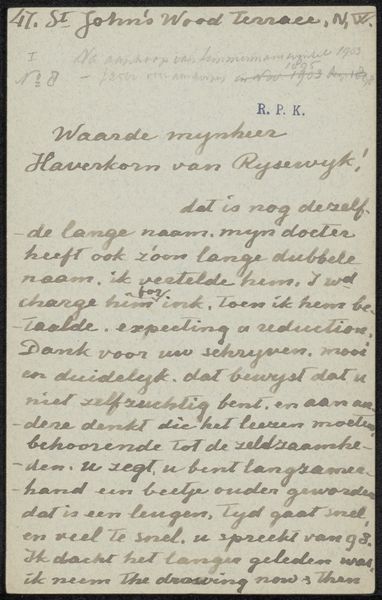 47. St John's Wood Terrace, N,W.
I Na aankoop van 1903
No 8 1895
in Nov 1903
R. P. K.
Waarde mynheer
Haverkorn van Rysewyk!
dat is nog dezelf-
-de lange naam. myn docter
heeft ook zóón lange dubbele
naam. ik vertelde hem. I wd
charge him for ink. toen ik hem be-
-taalde. expecting a reduction.
Dank voor uw schryven. mooi
en duidelyk. dat bewyst dat u
niet zelfzuchtig bent. en aan an-
dere denkt die het leezen moeten
behoorende tot de zeldzaamhe-
-den. u zegt, u bent langzamer-
hand een beetje ouder geworden
dat is een leugen, tyd gaat snel,
en veel te snel. u spreekt van 98.
Ik dacht het langer geleden was,
ik neem the drawing now & then